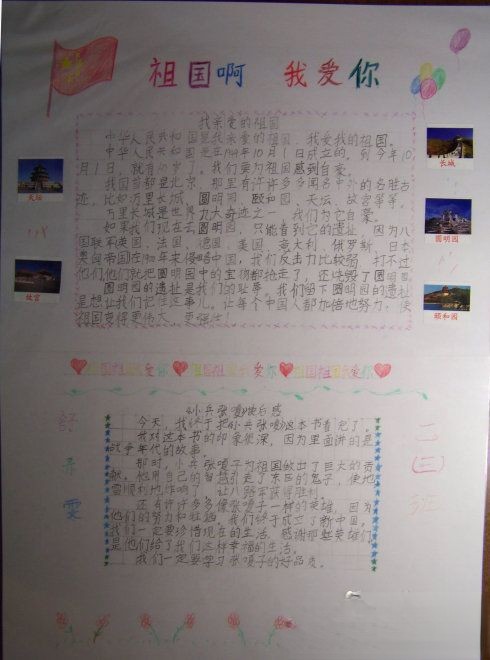 祖国啊 我爱你
我亲爱的祖国
中华人民共和国是我亲爱的祖国，我爱我的祖国。
中华人民共和国是在1949年10月1日成立的，到今年10
月1日，就有 岁了。我们要为祖国感到自豪。
我国首都是北京，那里有许许多多闻名中 的名胜古
迹，比如万里长城、圆明园、颐和园、天坛、故宫等等。
万里长城是世界九大奇迹之一，我们为它自豪。
如果我们现在去圆明园，只能看到它的遗址，因为八
国联 英国、法国、德国、美国、意大利、俄罗斯、日本、
奥匈帝国在 年来侵略中国，我们反击力比较弱，打不过
他们，他们就把圆明园中的宝物都抢走了，还烧毁了圆明园。
圆明园的遗址是我们的耻辱。我们留下圆明园的遗址
是想让我们记住这事儿。让每个中国人都加倍地努力，使
祖国变得更伟大、更强壮！
天坛
故宫
长城
圆明园
颐和园
祖国祖国我爱你 祖国祖国我爱你 祖国祖国我爱你
《小兵张嘎》读后感
今天，我终于把《小兵张嘎》这本书看完了。
我对这本书的印象很深，因为里面讲的是
战争年代的故事。
那时，小兵张嘎子为祖国做出了巨大的贡
献。他用自己的智慧引走了东西的鬼子，使地
雷顺利地炸响了，让八路军获得胜利。
还有许许多多像张嘎子一样的英雄，因为
他们的努力和 ，我们终于成立了新中国。
我们一定要珍惜现在的生活，感谢那些英雄们，
是他们给了我们这样幸福的生活。
我们一定要学习张嘎子的好品质。
二(三)班